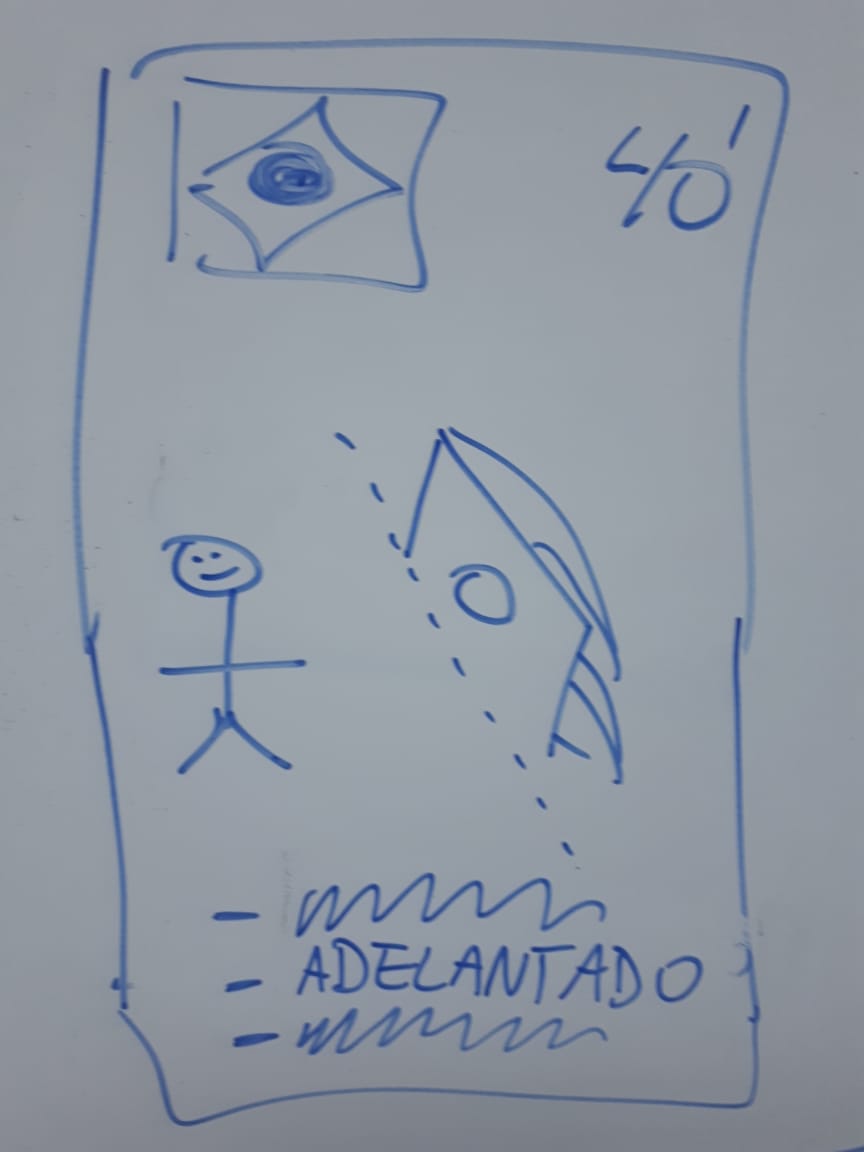 40'
- ADELANTADO